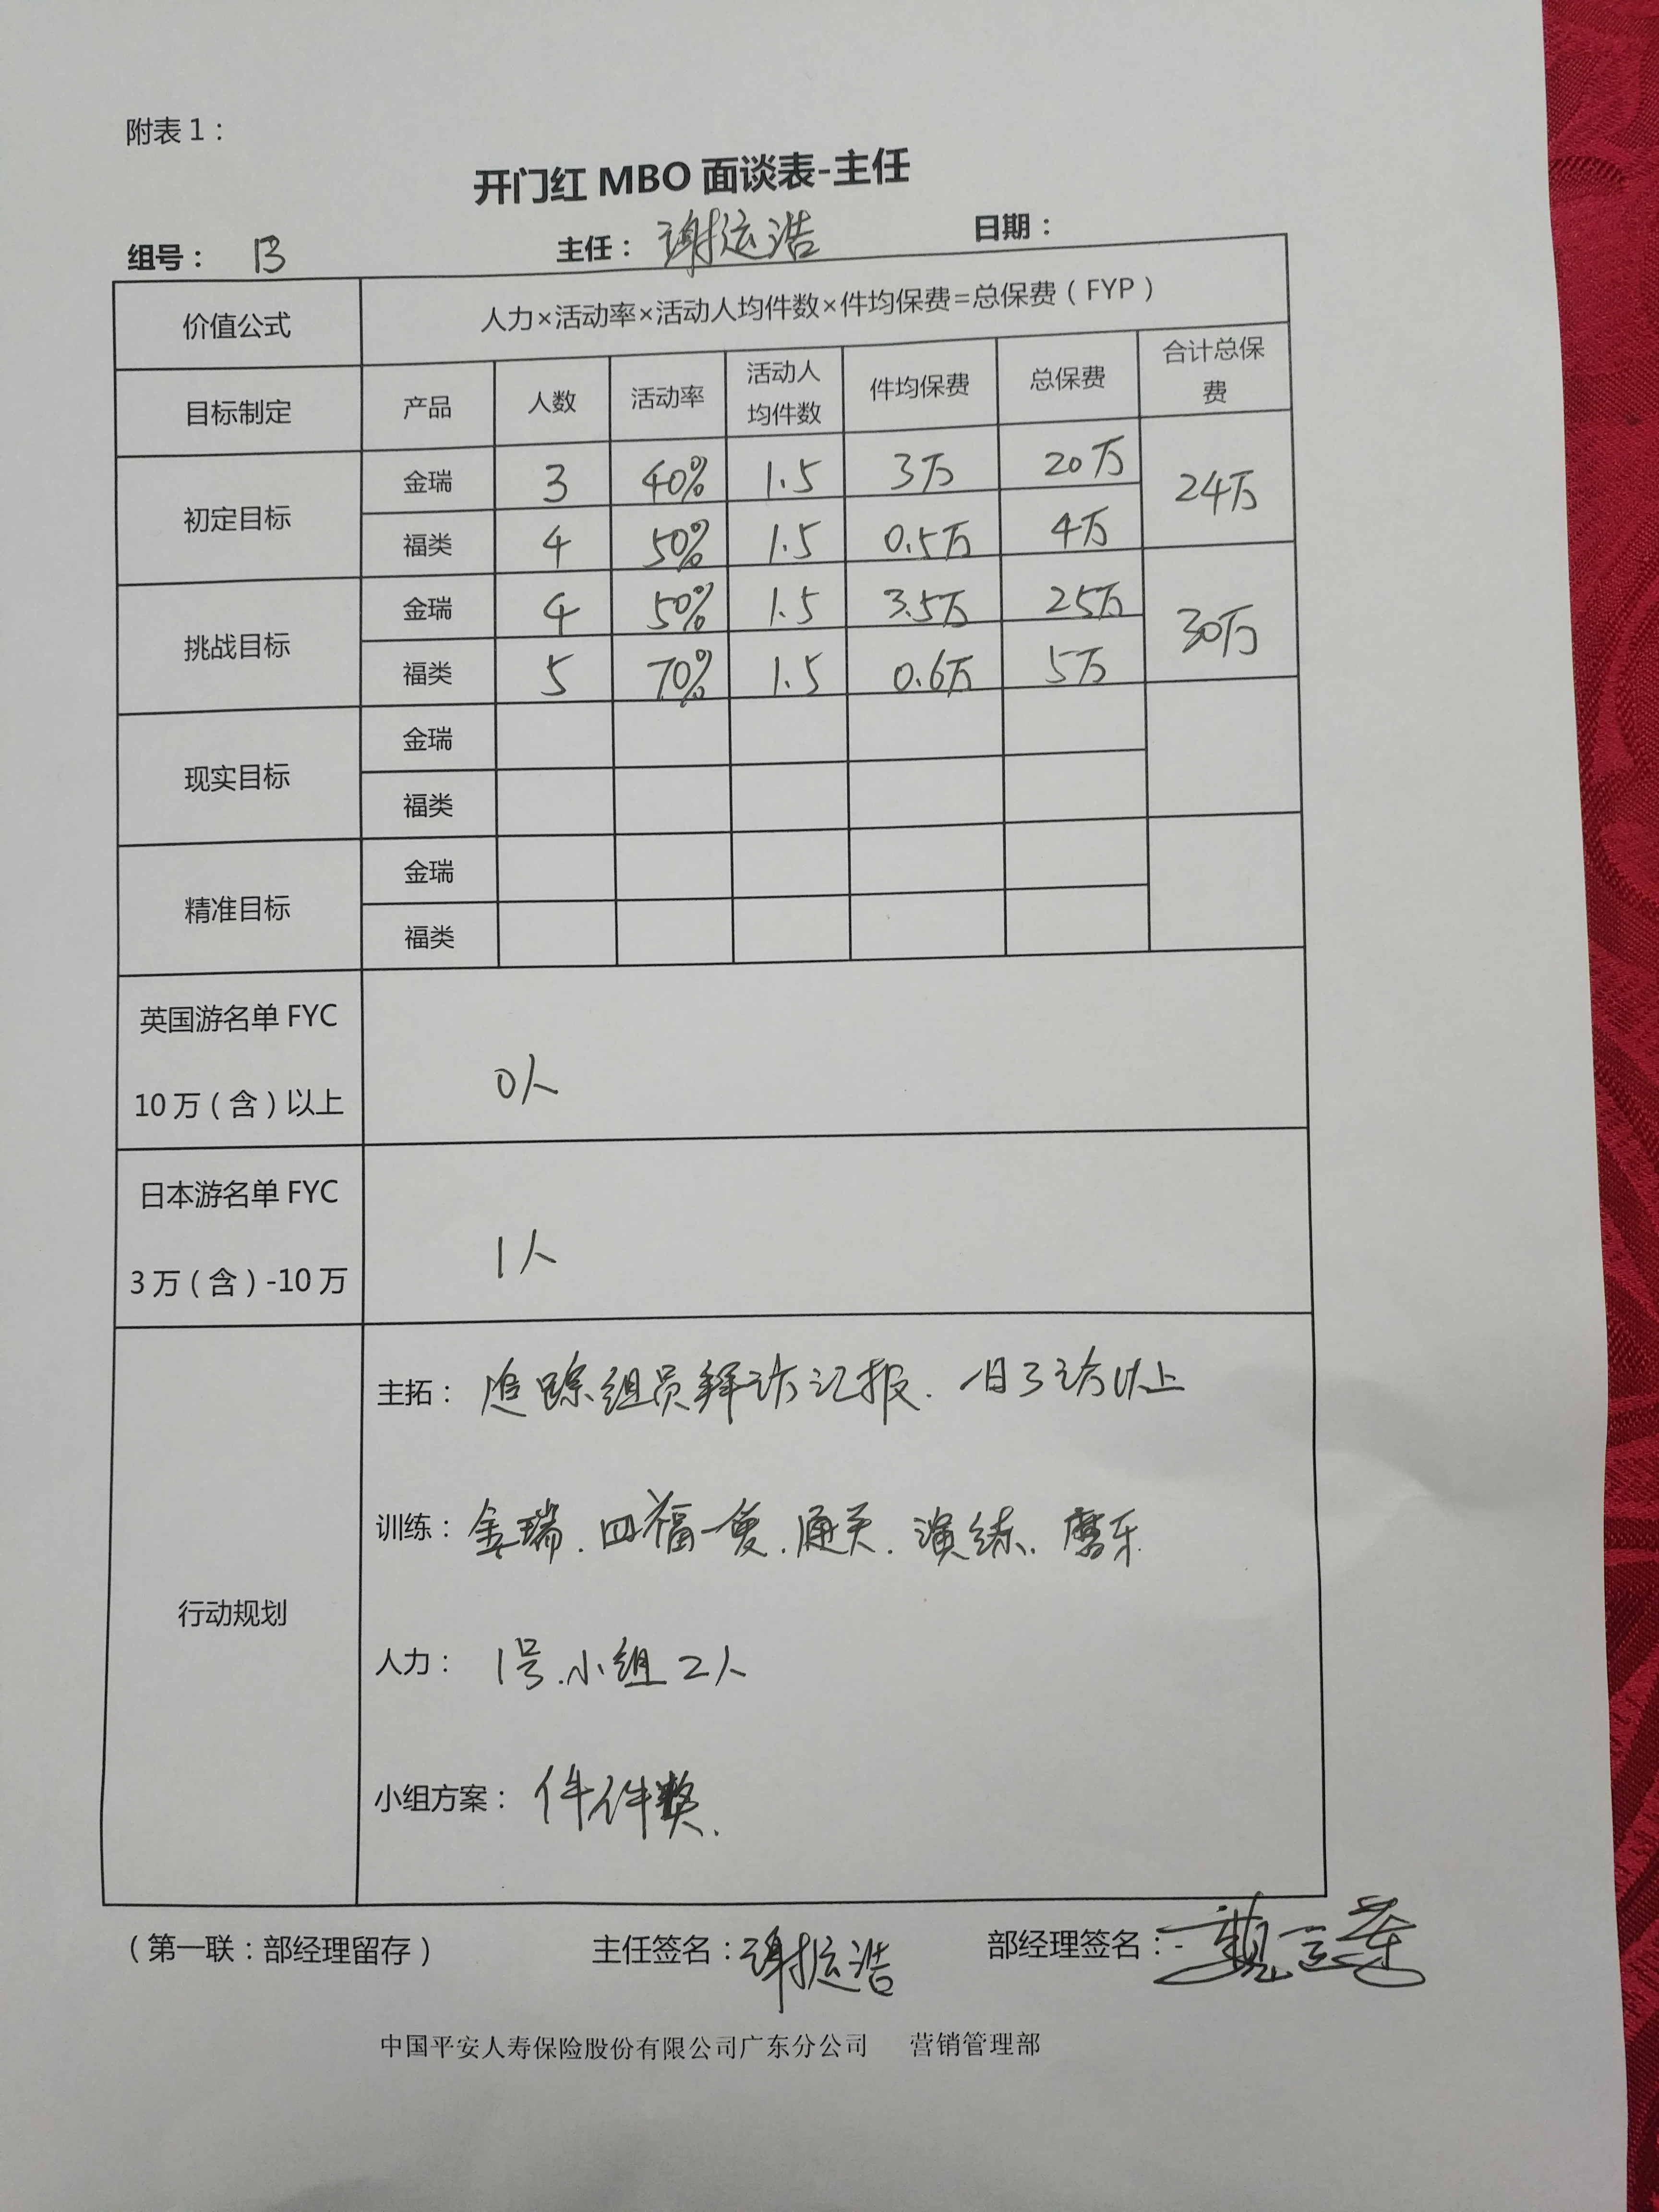 附表1：
开门红 MBO 面谈表-主任
组号： B 主任： 谢运浩 日期：
价值公式 人力×活动率×活动人均件数×件均保费=总保费（FYP）
目标制定 产品 人数 活动率 活动人均件数 件均保费 总保费 合计总保费
初定目标 金瑞 3 40% 1.5 3万 20万 24万
福类 4 50% 1.5 0.5万 4万
挑战目标 金瑞 4 50% 1.5 3.5万 25万 30万
福类 5 70% 1.5 0.6万 5万
现实目标 金瑞
福类
精准目标 金瑞
福类
英国游名单 FYC
10万（含）以上 0人
日本游名单 FYC
3万（含）-10万 1人
行动规划
主拓： 追踪组员拜访汇报. 一日3访以上
训练： 金瑞. 四福一. 通关. 演练.
人力： 1号.小组2人
小组方案： 件件奖.
（第一联：部经理留存） 主任签名：谢运浩 部经理签名：
中国平安人寿保险股份有限公司广东分公司 营销管理部